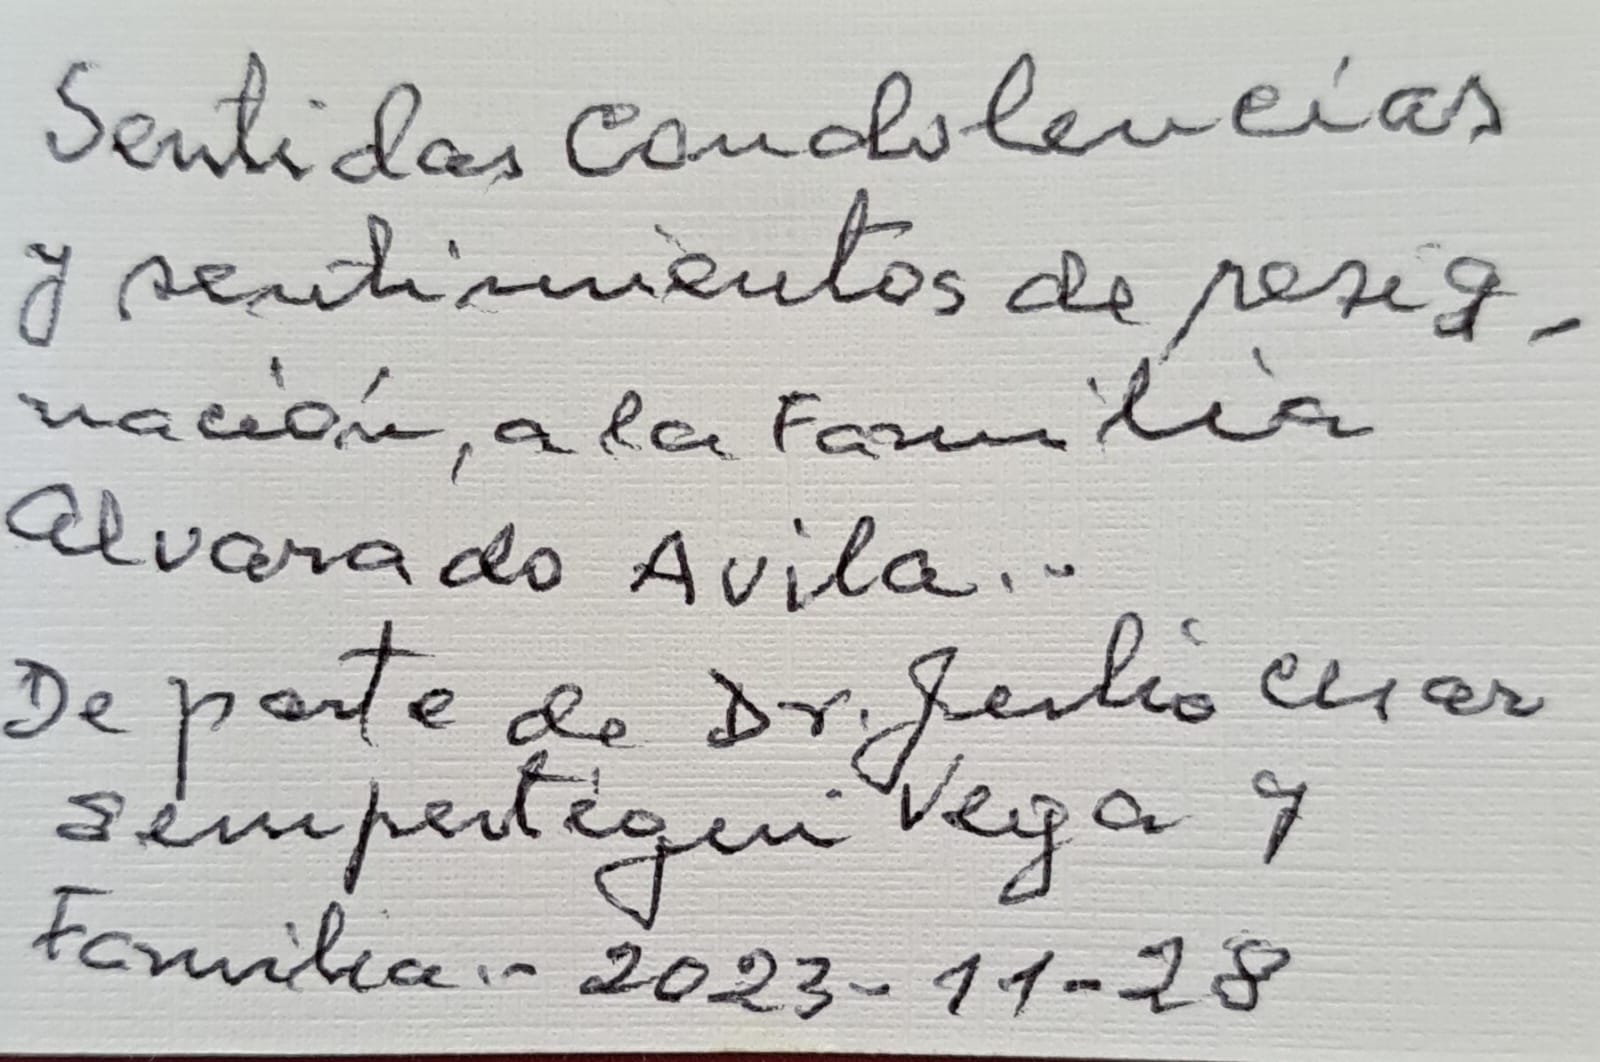 Sentidas Condolencias
y sentimientos de resig-
nación, a la Familia
Alvarado Avila.-
De parte de Dr. Julio Cesar
Sempertegui Vega y
Familia.- 2023-11-28